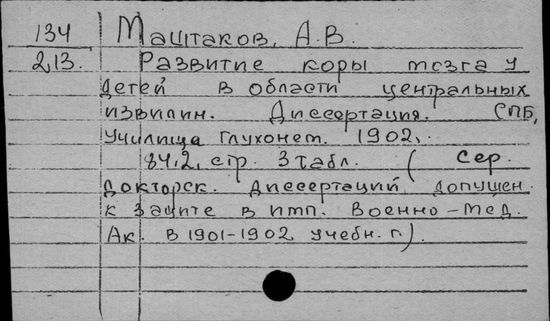 134 Маштаков, А.В.
213. Развитие коры мозга у
детей в области центральных
извилин. Диссертация. СПБ,
Училища Глухонем. 1902,.
84,2, стр. 3 табл. (Сер.
докторск. диссертаций, допущен.
к защите в имп. Военно-Мед.
Ак. в 1901-1902 учебн. г.).